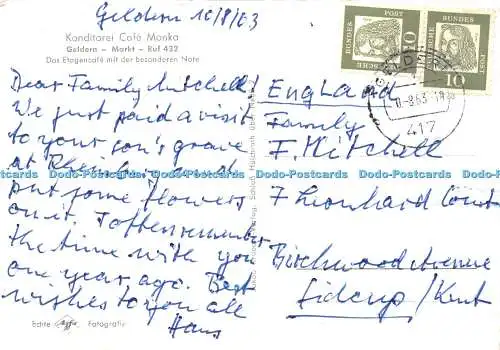 Geldern 10/8/63
Konditorei Café Monka
Geldern – Markt – Ruf 432
Das Etagencafé mit der besonderen Note
Dear Family Mitchell!
We just paid a visit
to your son's grave
at Rheinberg and
put some flowers
on it. I often remember
the time with you
one year ago. Best
wishes to you all
Hans
Echte Agfa Fotografie
DEUTSCHE BUNDESPOST 10
DEUTSCHE BUNDESPOST 10
GELDERN
-8.63
417
England
Family
F. Mitchell
7 Leonhard Court
Birchwood Avenue
Sidcup / Kent
Dodo-Postcards Dodo-Postcards Dodo-Postcards Dodo-Postcards